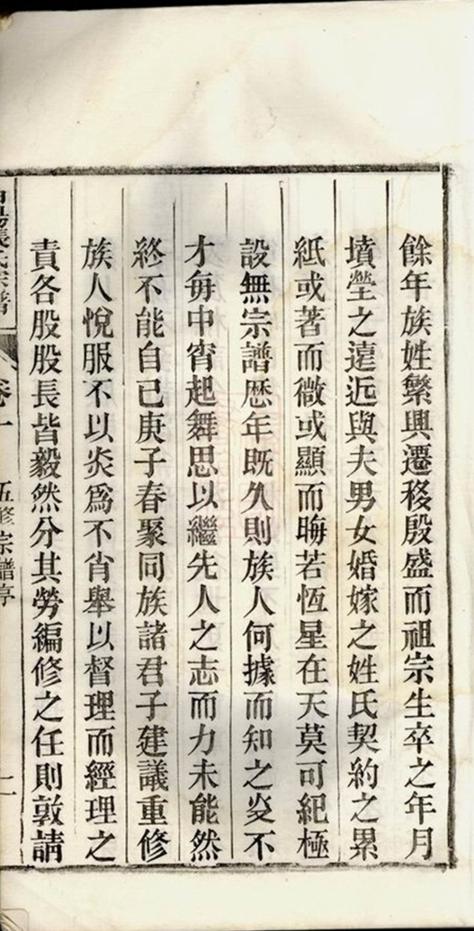 餘年族姓繁興遷移殷盛而祖宗生卒之年月
墳塋之遠近與夫男女婚嫁之姓氏契約之累
紙或著而微或顯而晦若恆星在天莫可紀極
設無宗譜歴年既久則族人何據而知之炎不
才每中宵起舞思以繼先人之志而力未能然
終不能自已庚子春聚同族諸君子建議重修
族人悅服不以炎爲不肖舉以督理而經理之
責各股股長皆毅然分其勞編修之任則敦請
張氏宗譜 卷一 五修宗譜序 二